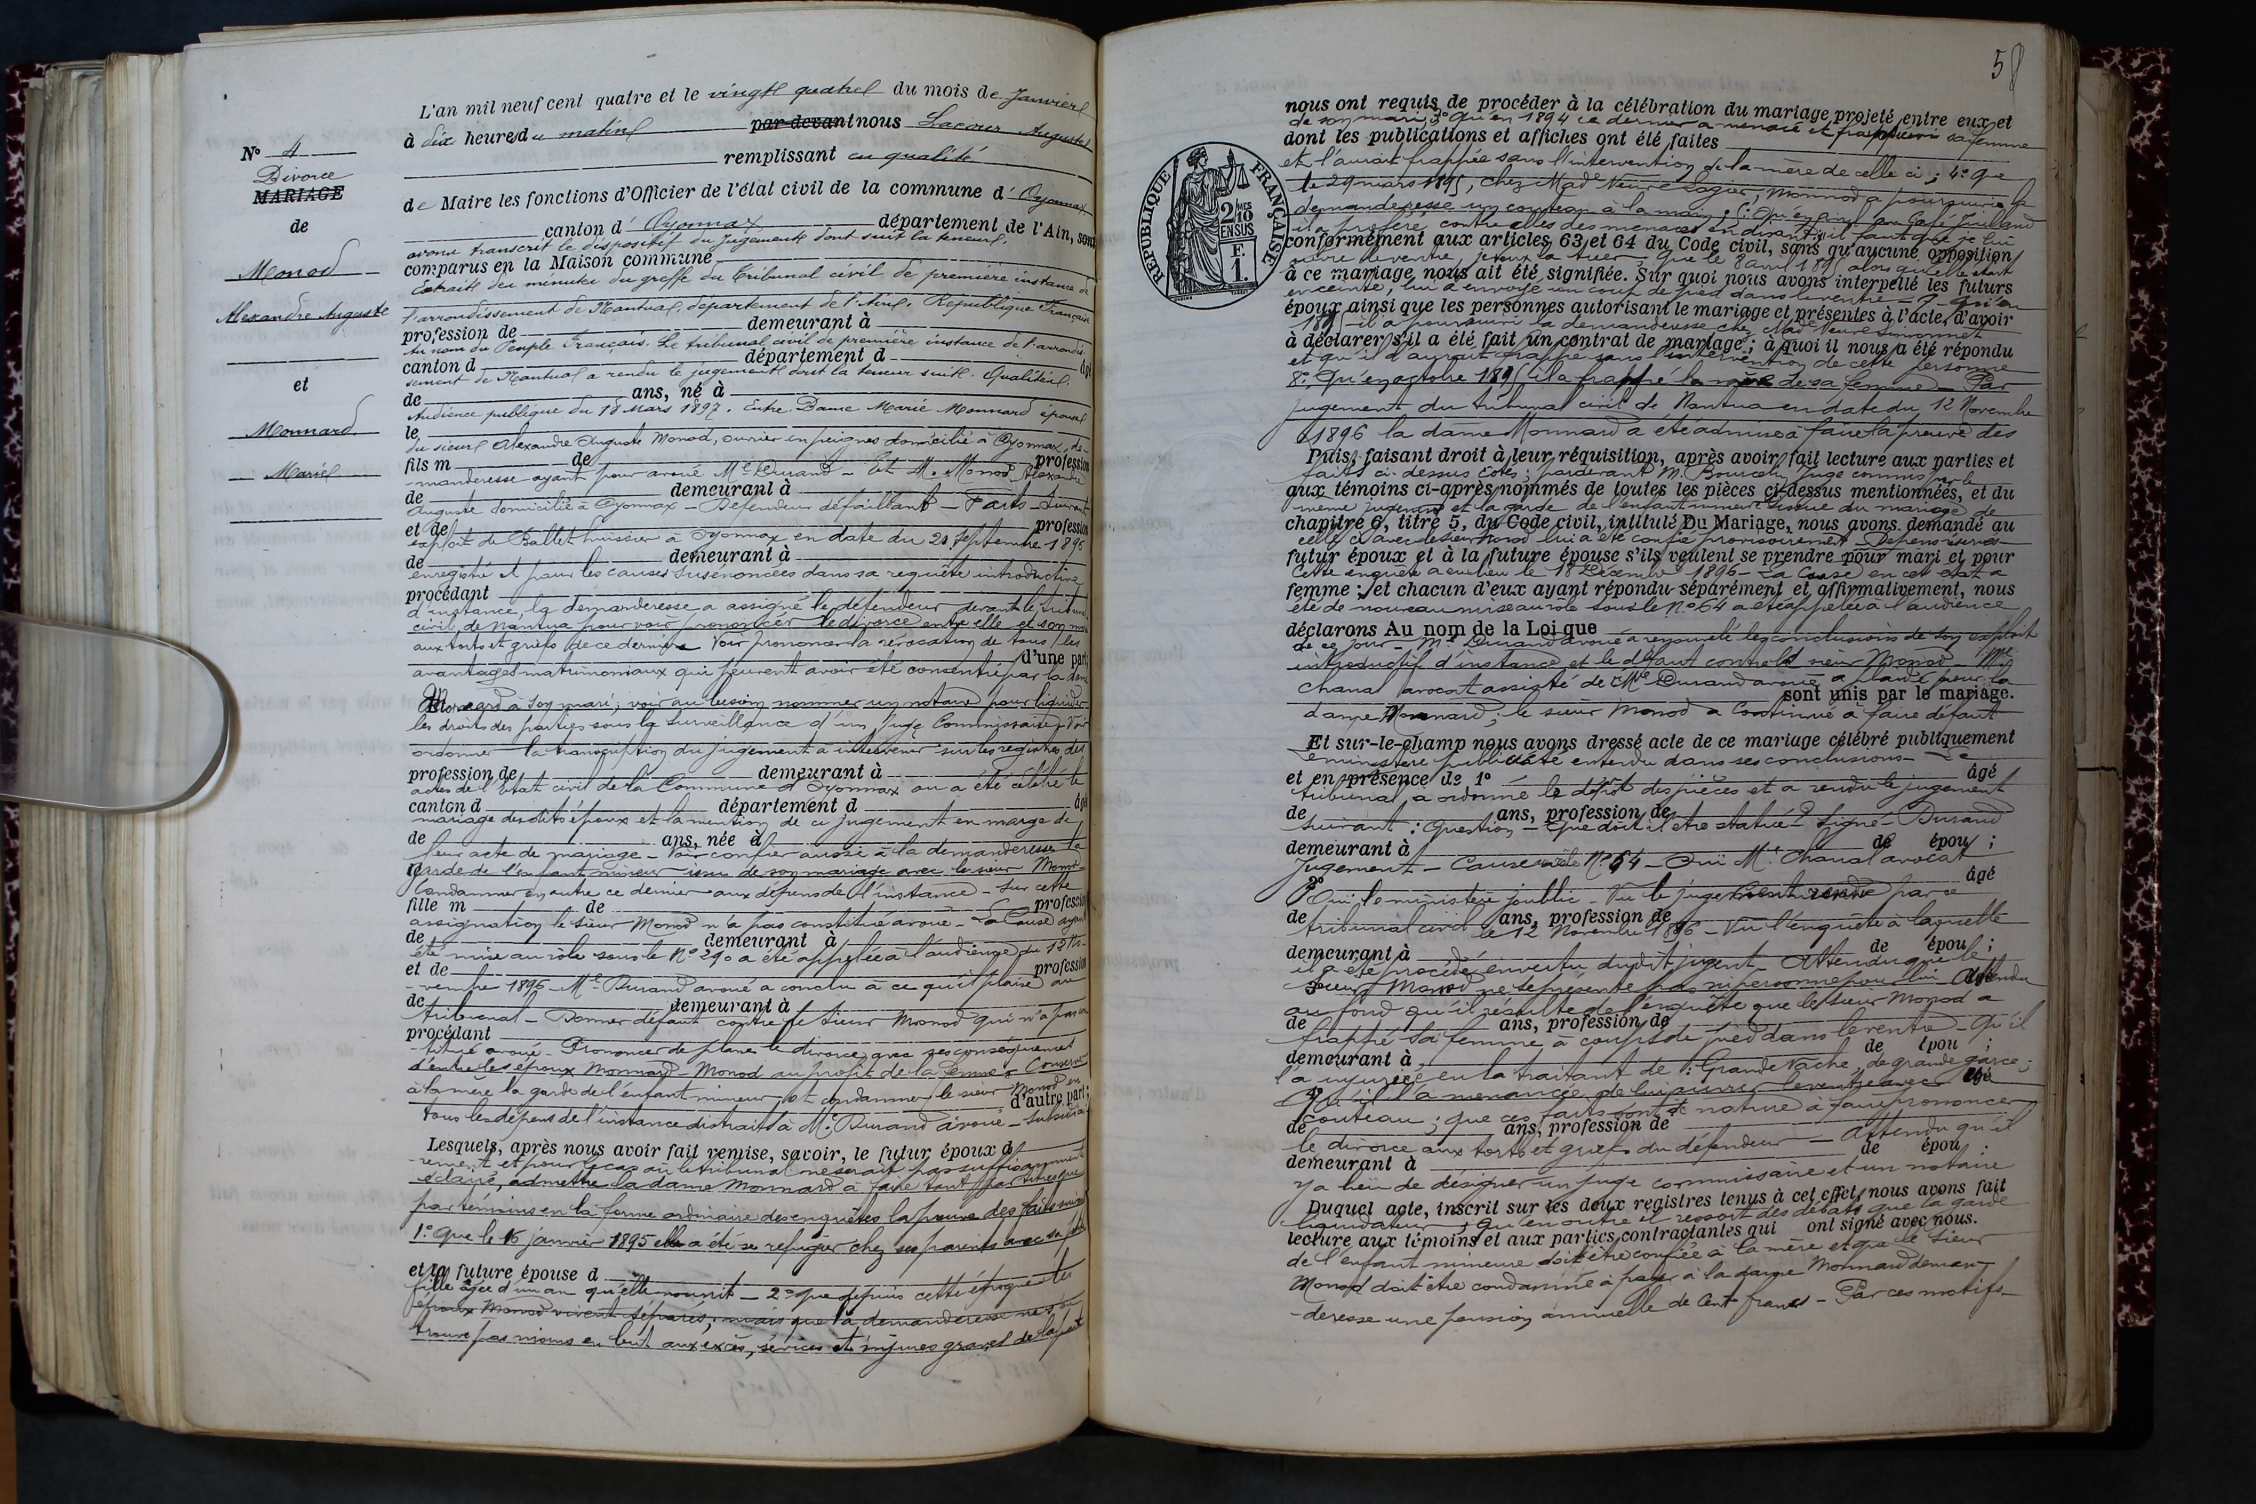 L'an mil neuf cent quatre et le vingt quatre du mois de Janvier
à dix heures du matin par-devant nous Lacour Auguste
remplissant en qualité
de Maire les fonctions d'Officier de l'état civil de la commune d'Oyonnax
canton d'Oyonnax département de l'Ain, sont
avons transcrit le dispositif du jugement dont suit la teneur.
comparus en la Maison commune
Extrait des minutes du greffe du Tribunal civil de première instance de
l'arrondissement de Nantua, département de l'Ain. République Française
profession de demeurant à
Au nom du Peuple Français. Le tribunal civil de première instance de l'arrondis-
canton d département d âgé
sement de Nantua a rendu le jugement dont la teneur suit. Qualités.
de ans, né à
Audience publique du 18 Mars 1897. Entre Dame Marie Monnard épouse
le
du sieur Alexandre Auguste Monod, ouvrier en peignes domicilié à Oyonnax, de-
fils m de profession
manderesse ayant pour avoué Me Durand - Et M. Monod Alexandre
de demeurant à
Auguste domicilié à Oyonnax - Défendeur défaillant - Faits - Suivant
et de profession
exploit de Ballet huissier à Oyonnax en date du 21 Septembre 1896
de demeurant à
enregistré et pour les causes susénoncées dans sa requête introductive
procédant
d'instance, la demanderesse a assigné le défendeur devant le tribunal
civil de Nantua pour voir prononcer le divorce entre elle et son mari
aux torts et griefs de ce dernier Voir prononcer la révocation de tous les
d'une part
avantages matrimoniaux qui peuvent avoir été consentis par la dame
Et
Monnard à son mari; voir au besoin nommer un notaire pour liquider
les droits des parties sous la surveillance d'un Juge Commissaire; Voir
ordonner la transcription du jugement à intervenir sur les registres des
profession de demeurant à
actes de l'Etat civil de la Commune d'Oyonnax où a été célébré le
canton d département d âgé
mariage desdits époux et la mention de ce jugement en marge de
de ans, née à
leur acte de mariage - Voir confier aussi à la demanderesse la
garde de l'enfant mineur issu de son mariage avec le sieur Monod
Condamner en outre ce dernier aux dépens de l'instance - Sur cette
fille m de profession
assignation le sieur Monod n'a pas constitué avoué - La Cause ayant
de demeurant à
été mise au rôle sous le N° 290 a été appelée à l'audience du 12 No-
et de profession
vembre 1896 - Me Durand avoué a conclu à ce qu'il plaise au
de demeurant à
tribunal - Donner défaut contre le sieur Monod qui n'a pas cons-
procédant
titué avoué - Prononcer de plano le divorce avec ses conséquences
d'entre les époux Monnard - Monod au profit de la femme Conserver
à la mère la garde de l'enfant mineur, et condamner le sieur Monod en
d'autre part;
tous les dépens de l'instance distraits à Me Durand avoué - Subsidiai-
Lesquels, après nous avoir fait remise, savoir, le futur époux d
rement et pour le cas où le tribunal ne serait pas suffisamment
éclairé, admettre la dame Monnard à faire tant par titres que
par témoins en la forme ordinaire des enquêtes la preuve des faits suivants
1° que le 16 janvier 1895 elle a été se réfugier chez ses parents avec sa petite
et la future épouse d
fille âgée d'un an qu'elle nourrit - 2° que depuis cette époque les
époux Monod vivent séparés, mais que la demanderesse ne s'en
trouve pas moins en but aux excès, sévices et injures graves de la part
N° 4
Divorce
MARIAGE
de
Monod
Alexandre Auguste
et
Monnard
Marie
58
RÉPUBLIQUE FRANÇAISE
2/10 MES
EN SUS
F.
1.
nous ont requis de procéder à la célébration du mariage projeté entre eux et
de son mari; 3° Qu'en 1894 ce dernier a menacé et sa femme
dont les publications et affiches ont été faites
et l'aurait frappée sans l'intervention de la mère de celle ci; 4° que
le 29 mars 1895, chez Made Veuve Monod a poursuivi la
demanderesse un couteau à la main; 5° Qu'en au Café
il a proféré contre elle des menaces en disant il faut que je lui
conformément aux articles 63 et 64 du Code civil, sans qu'aucune opposition
ouvre le ventre, je veux la tuer; que le 8 avril 1895 alors qu'elle était
à ce mariage nous ait été signifiée. Sur quoi nous avons interpellé les futurs
enceinte, lui a envoyé un coup de pied dans le ventre - 7° Qu'en
époux ainsi que les personnes autorisant le mariage et présentes à l'acte, d'avoir
1895 il a poursuivi la demanderesse chez Made Veuve
à déclarer s'il a été fait un contrat de mariage; à quoi il nous a été répondu
et qu'il l'aurait frappée sans l'intervention de cette personne
8° Qu'en octobre 1895 il a frappé la mère de sa femme - Par
jugement du tribunal civil de Nantua en date du 12 Novembre
1896 la dame Monnard a été admise à faire la preuve des
Puis, faisant droit à leur réquisition, après avoir fait lecture aux parties et
faits ci-dessus cotés; pardevant M. juge commis par le
aux témoins ci-après nommés de toutes les pièces ci-dessus mentionnées, et du
même jugement et la garde de l'enfant mineur issue du mariage de
chapitre 6, titre 5, du Code civil, intitulé Du Mariage, nous avons demandé au
celle ci avec le sieur Monod lui a été confié provisoirement Dépens réservés
futur époux et à la future épouse s'ils veulent se prendre pour mari et pour
Cette enquête a eu lieu le 18 Décembre 1896 - La Cause en cet état a
femme : et chacun d'eux ayant répondu séparément et affirmativement, nous
été de nouveau mise au rôle sous le N° 64 a été appelée à l'audience
déclarons Au nom de la Loi que
de ce jour - Me Durand avoué a renouvelé les conclusions de son exploit
introductif d'instance et le défaut contre le sieur Monod - Me
Chanal avocat assisté de Me Durand avoué a plaidé pour la
sont unis par le mariage.
dame Monnard; le sieur Monod a continué à faire défaut
Et sur-le-champ nous avons dressé acte de ce mariage célébré publiquement
Le ministère public a été entendu dans ses conclusions - Le
et en présence de 1° âgé
tribunal a ordonné le dépôt des pièces et a rendu le jugement
de ans, profession de
suivant : Question - Que doit il être statué ? Signé - Durand
demeurant à de épou ;
Jugement - Cause rôle N° 64 - Ouï Me Chanal avocat
2° âgé
Ouï le ministère public - Vu le jugement rendu par ce
de ans, profession de
tribunal civil le 12 Novembre 1896 - Vu l'enquête à laquelle
demeurant à de épou ;
il a été procédé en vertu dudit jugent - Attendu que le
3° âgé
sieur Monod ne se présente pas ni personne pour lui - Attendu
au fond qu'il résulte de l'enquête que le sieur Monod a
de ans, profession de
frappé sa femme à coups de pied dans le ventre - Qu'il
demeurant à de épou ;
l'a injuriée en la traitant de : Grande Vache, de grande garce;
4° âgé
Qu'il l'a menacée de lui ouvrir le ventre avec un
couteau; que ces faits sont de nature à faire prononcer
de ans, profession de
le divorce aux torts et griefs du défendeur - Attendu qu'il
demeurant à de épou ;
y a lieu de désigner un juge commissaire et un notaire
Duquel acte, inscrit sur les deux registres tenus à cet effet, nous avons fait
liquidateur; Qu'en outre il ressort des débats que la garde
lecture aux témoins et aux parties contractantes qui ont signé avec nous.
de l'enfant mineure doit être confiée à la mère et que le sieur
Monod doit être condamné à payer à la dame Monnard deman-
deresse une pension annuelle de Cent francs - Par ces motifs -